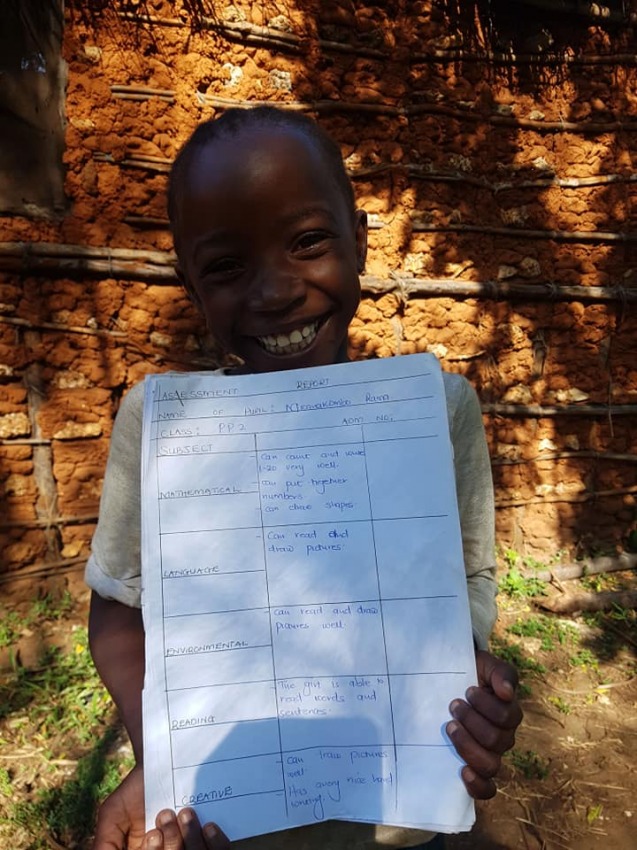 ASSESSMENT REPORT
NAME OF PUPIL: Rava
CLASS: PP2 ADM NO:
SUBJECT
MATHEMATICAL
- Can count and write
1-20 very well.
- can put together
numbers
- can draw shapes.
LANGUAGE
- Can read and
draw pictures.
ENVIRONMENTAL
- Can read and draw
pictures well.
READING
- The girl is able to
read words and
sentences.
CREATIVE
- Can draw pictures
well
- Has a very nice hand